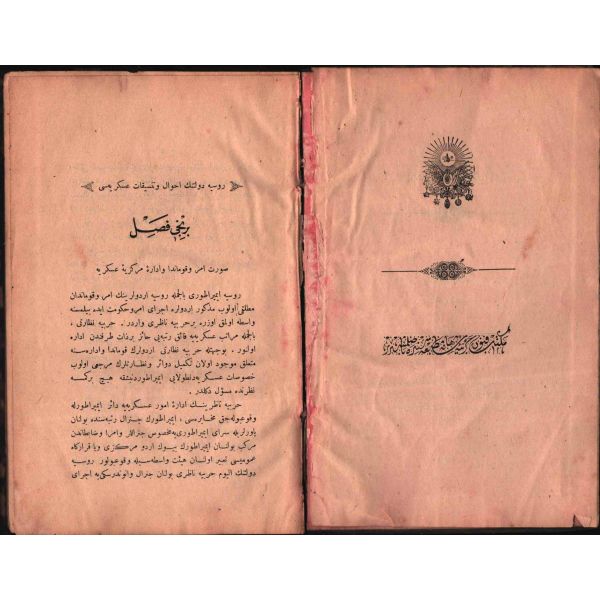 روسیه دولتنك احوال و تنسیقات عسكریه‌سی
برنجی فصل
صورت امر و قوماندا و ادارهٔ مركزیهٔ عسكریه
روسیه ایمپراطوری بالجمله روسیه اردولرینك امر و قوماندان
مطلق اولوب مذكور اردولره اجرای امر و حكومت ایده بیلمسنه
واسطه اولمق اوزره بر حربیه ناظری واردر . حربیه نظارتی ،
بالجمله مراتب عسكریه‌یه فائق رتبه‌یی حائز بر ذات طرفندن اداره
اولنور . بوجهتله حربیه نظارتی اردولرك قوماندا و اداره‌سنه
متعلق موجود اولان تكمیل دوائر و نظارتلرك مرجعی اولوب
خصوصات عسكریه‌دن‌طولایی ایمپراطوردن‌بشقه هیچ بركمسه
نظرنده مسؤل دكلدر .
حربیه ناظرینك ادارهٔ امور عسكریه‌یه دائر ایمپراطورله
وقوعبوله‌جق مخابره‌سی ، ایمپراطورك جنرال رتبه‌سنده بولنان
یاورلریله سرای ایمپراطوری‌یه مخصوص جنراللر و امرا و ضابطاندن
مركب بولنان ایمپراطورك بیوك اردو مركزی ویا قراركاه
عمومیسی تعبیر اولنان هیئت واسطه‌سیله وقوعبولور . روسیه
دولتنك الیوم حربیه ناظری بولنان جنرال وانوفسكی‌یه اجرای